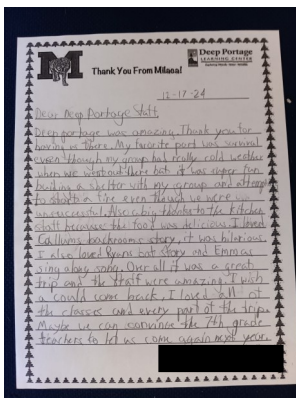 Deep Portage
LEARNING CENTER
Thank You From Milaca!
12-17-24
Dear Deep Portage Staff,
Deep portage was amazing. Thank you for
having us there. My favorite part was survival
even though my group had really cold weather
when we went out there but it was super fun
building a shelter with my group and
to start a fire even though we were
unsuccessful. Also a big thanks to the kitchen
staff because the food was delicious. I loved
Callums story, it was hilarious.
I also loved Ryans story and Emmas
sing along song. Over all it was a great
trip and the staff were amazing. I wish
I could come back, I loved all of
the classes and every part of the trip.
Maybe we can convince the 7th grade
teachers to let us come again next year.